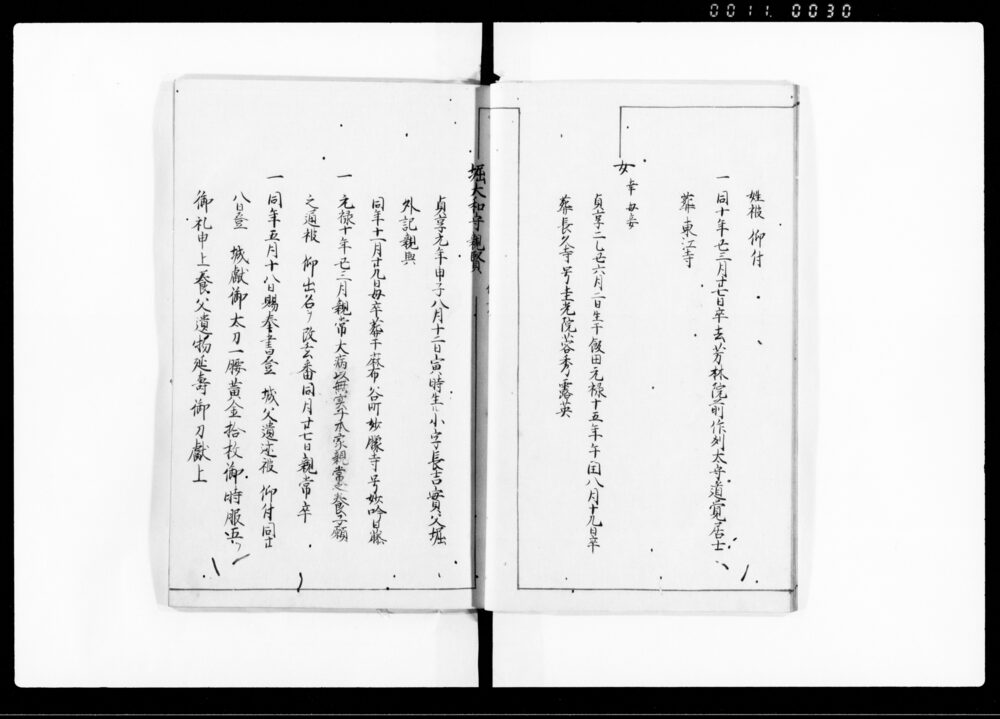 0011. 0030
姓被 仰付
一同十年丑三月廿七日卒去芳林院前作刕太守道寛居士
葬東江寺
女 幸 母妾
貞享二乙丑六月二日生于飯田元禄十五年午閏八月十九日卒
葬長久寺号圭光院蓉秀露英
堀大和守親賢
貞享元年甲子八月十二日寅ノ時生ル小字長吉實父堀
外記親興
同年十一月廿九日母卒葬于麻布谷町妙像寺号妙吟日藤
一元禄十年丑三月親常大病以無実子本家親常之養子願
之通被 仰出名ヲ改玄蕃同月廿七日親常卒
一同年五月十八日賜奉書登 城父遺迹被 仰付同廿
八日登 城獻御太刀一腰黄金拾枚御時服五ツ
御礼申上養父遺物延壽御刀獻上